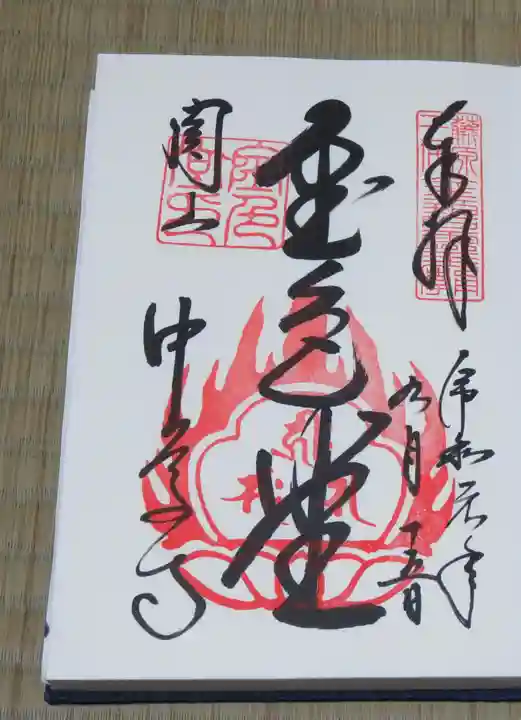 奉拝
令和元年
九月十五日
金色堂
関山
中尊寺